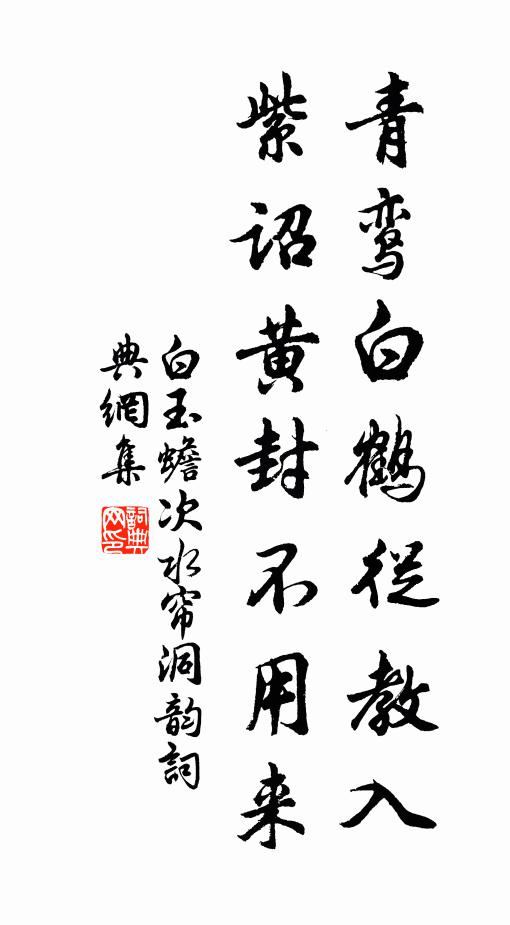 青鸾白鹤從教入
紫詔黄封不用来
白玉蟾次水帘洞韵詞
典網集
詞典網印